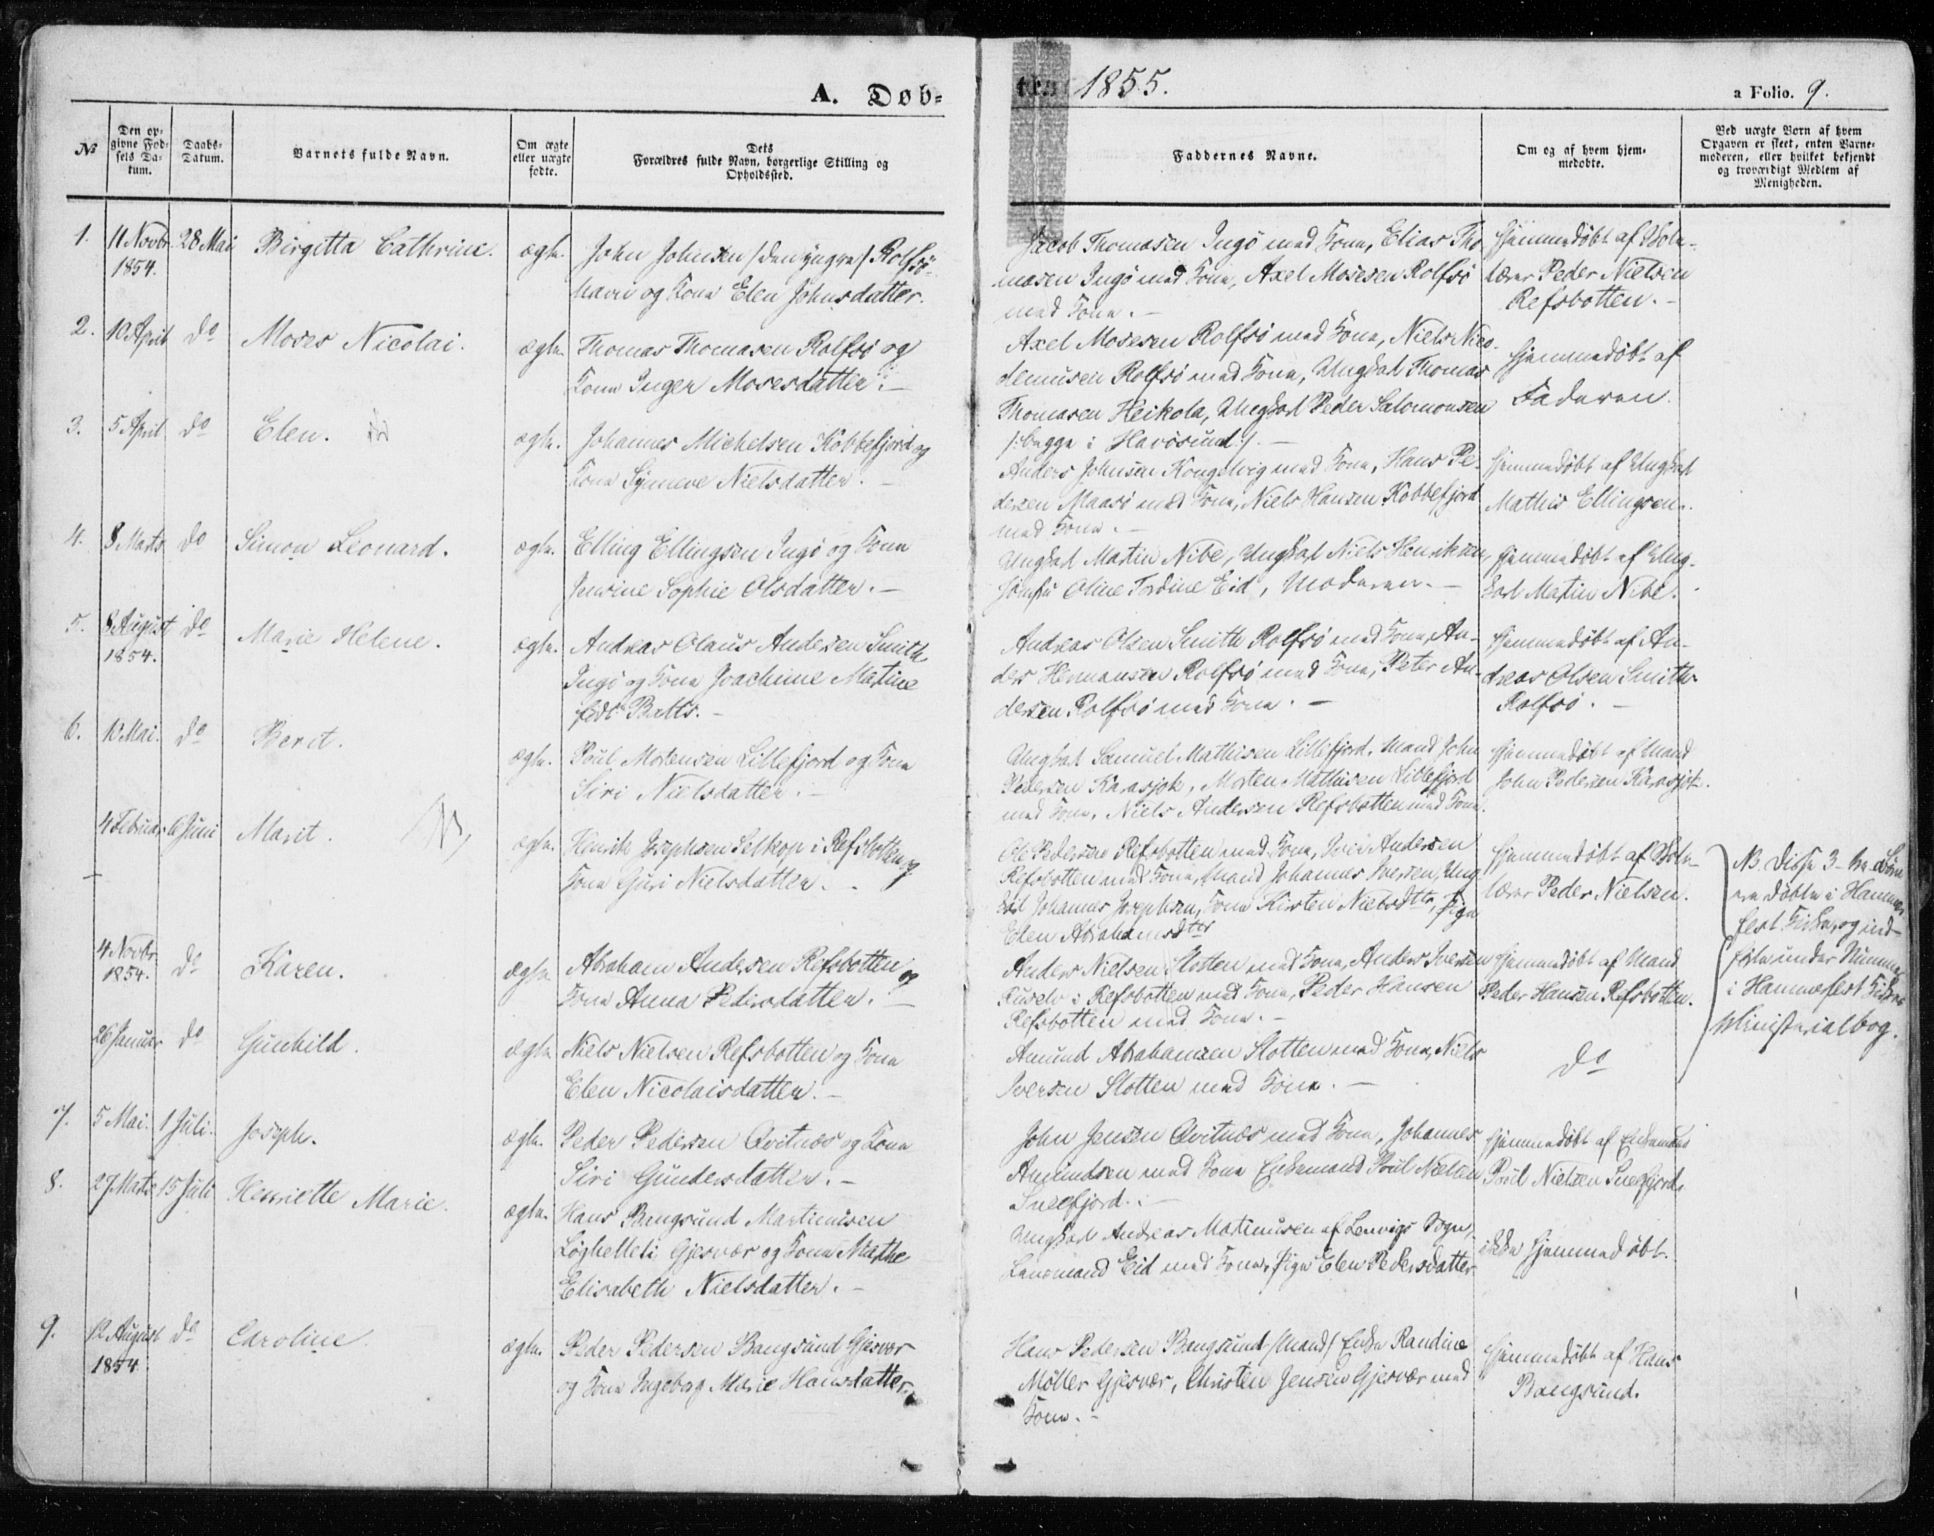 A. Døb-
te. 1855.
a Folio. 9.
No
Den op-
givne Fød-
sels Da-
tum.
Daabs-
Datum.
Barnets fulde Navn.
Om ægte
eller uægte
fødte.
Dets
Forældres fulde Navn, borgerlige Stilling og
Opholdssted.
Faddernes Navne.
Om og af hvem hjem-
medøbte.
Ved uægte Børn af hvem
Opgaven er skeet, enten Barne-
moderen, eller hvilket bekjendt
og troværdigt Medlem af
Menigheden.
1. 11 Novbr 28 Mai Birgitta Cathrine. ægte.
1854.
John Johnsen /den yngre/ Rolfsö-
havn og Kone Elen Johnsdatter.
Jacob Thomasen Ingö med Kone, Elias Tho
masen Ingö med Kone, Axel Mosesen Rolfsö
med Kone.
Hjemmedöbt af Skole-
lærer Peder Nielsen
Refsbotten.
2. 10 April do Moses Nicolai. ægte.
Thomas Thomasen Rolfsö og
Kone Inger Mosesdatter.
Axel Mosesen Rolfsö med Kone, Niels Nico-
demusen Rolfsö med Kone, Ungkarl Thomas
Thomasen Heikola, Ungkarl Peder Salomonsen
/:begge i Havösund:/.
Hjemmedöbt af
Faderen.
3. 5 April do Elen. ægte.
Johannes Michelsen Kobbefjord og
Kone Synneve Nielsdatter.
Anders Johnsen Kongelvig med Kone, Hans Pe-
dersen Maasö med Kone, Niels Hansen Kobbefjord
med Kone.
Hjemmedöbt af Ungkarl
Mathis Ellingsen.
4. 8 Marts do Simon Leonard. ægte.
Elling Ellingsen Ingö og Kone
Sophie Olsdatter.
Ungkarl Martin Nibe, Ungkarl Niels Henriksen,
Jomfru Oline Eid, Moderen.
Hjemmedöbt af Ung-
karl Martin Nibe.
5. 8 August do Marie Helene. ægte.
1854.
Andreas Olaus Andersen Smith
Ingö og Kone Joachime Martine
födt
Andreas Olsen Smith Rolfsö med Kone, An-
ders Hermansen Rolfsö med Kone, Peter An-
dersen Rolfsö med Kone.
Hjemmedöbt af An-
dreas Olsen Smith
Rolfsö.
6. 10 Mai. do Berit. ægte.
Poul Mortensen Lillefjord og Kone
Siri Nielsdatter.
Ungkarl Samuel Mathisen Lillefjord, Mand John
Pedersen Karasjok, Morten Mathisen Lillefjord
med Kone, Niels Andersen Refsbotten med Kone.
Hjemmedöbt af Mand
John Pedersen Karasjok.
4 Februar 6 Juni Marit. ægte.
Henrik Josephsen i Refsbotten og
Kone Guri Nielsdatter.
Ole Pedersen Refsbotten med Kone, Iver Andersen
Refsbotten med Kone, Mand Johannes Iversen, Ung
karl Johannes Josephsen, Kone Kirsten Nielsdtr, Pige
Elen Abrahamsdtr
Hjemmedöbt af Skole-
lærer Peder Nielsen.
NB. Disse 3-ne Börn
ere döbte i Hammer-
fest Kirke, og ind-
förte under Nummer
i Hammerfest Kirkes
Ministerialbog.
4 Novbr do Karen. ægte
1854.
Abraham Andersen Refsbotten og
Kone Anna Pedersdatter.
Anders Nielsen Slotten med Kone, Anders Iversen
Ruselv i Refsbotten med Kone, Peder Hansen
Refsbotten med Kone.
Hjemmedöbt af Mand
Peder Hansen Refsbotten.
26 Januar do Gunhild. ægte
Niels Nielsen Refsbotten og Kone
Elen Nicolaisdatter.
Amund Abrahamsen Slotten med Kone, Niels
Iversen Slotten med Kone.
do
7. 5 Mai. 1 Juli. Joseph. ægte.
Peder Pedersen Qvitnæs og Kone
Siri Gundersdatter.
John Jensen Qvitnæs med Kone, Johannes
Amundsen med Kone Enkemand Poul Nielsen
Sneefjord.
Hjemmedöbt af Enkemand
Poul Nielsen Sneefjord.
8. 27 Marts 15 Juli Henriette Marie. ægte.
Hans Bengsund Martinusen
Gjesvær og Kone Mathe
Elisabeth Nielsdatter.
Ungkarl Andreas Martinusen af Lenvigs Sogn,
Eid med Kone, Pige Elen Pedersdatter
ikke hjemmedöbt.
9. 12 August do Caroline. ægte.
1854.
Peder Pedersen Bangsund Gjesvær
og Kone Ingeborg Marie Hansdatter.
Hans Pedersen Bangsund /Mand/ Enke Randine
Möller Gjesvær, Christen Jensen Gjesvær med
Kone.
Hjemmedöbt af Hans
Bangsund.